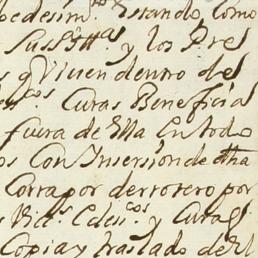 bedesim^to Estando, Como
Sus S^rias. y los Pres
s q Viuen dentro de
^cos Curas Beneficia
fuera de ella, En todo
os Con Insersion de dha
Corra por derrotero por
s Vic^s. Ecles^cos. y Curas
Copia y traslado de el